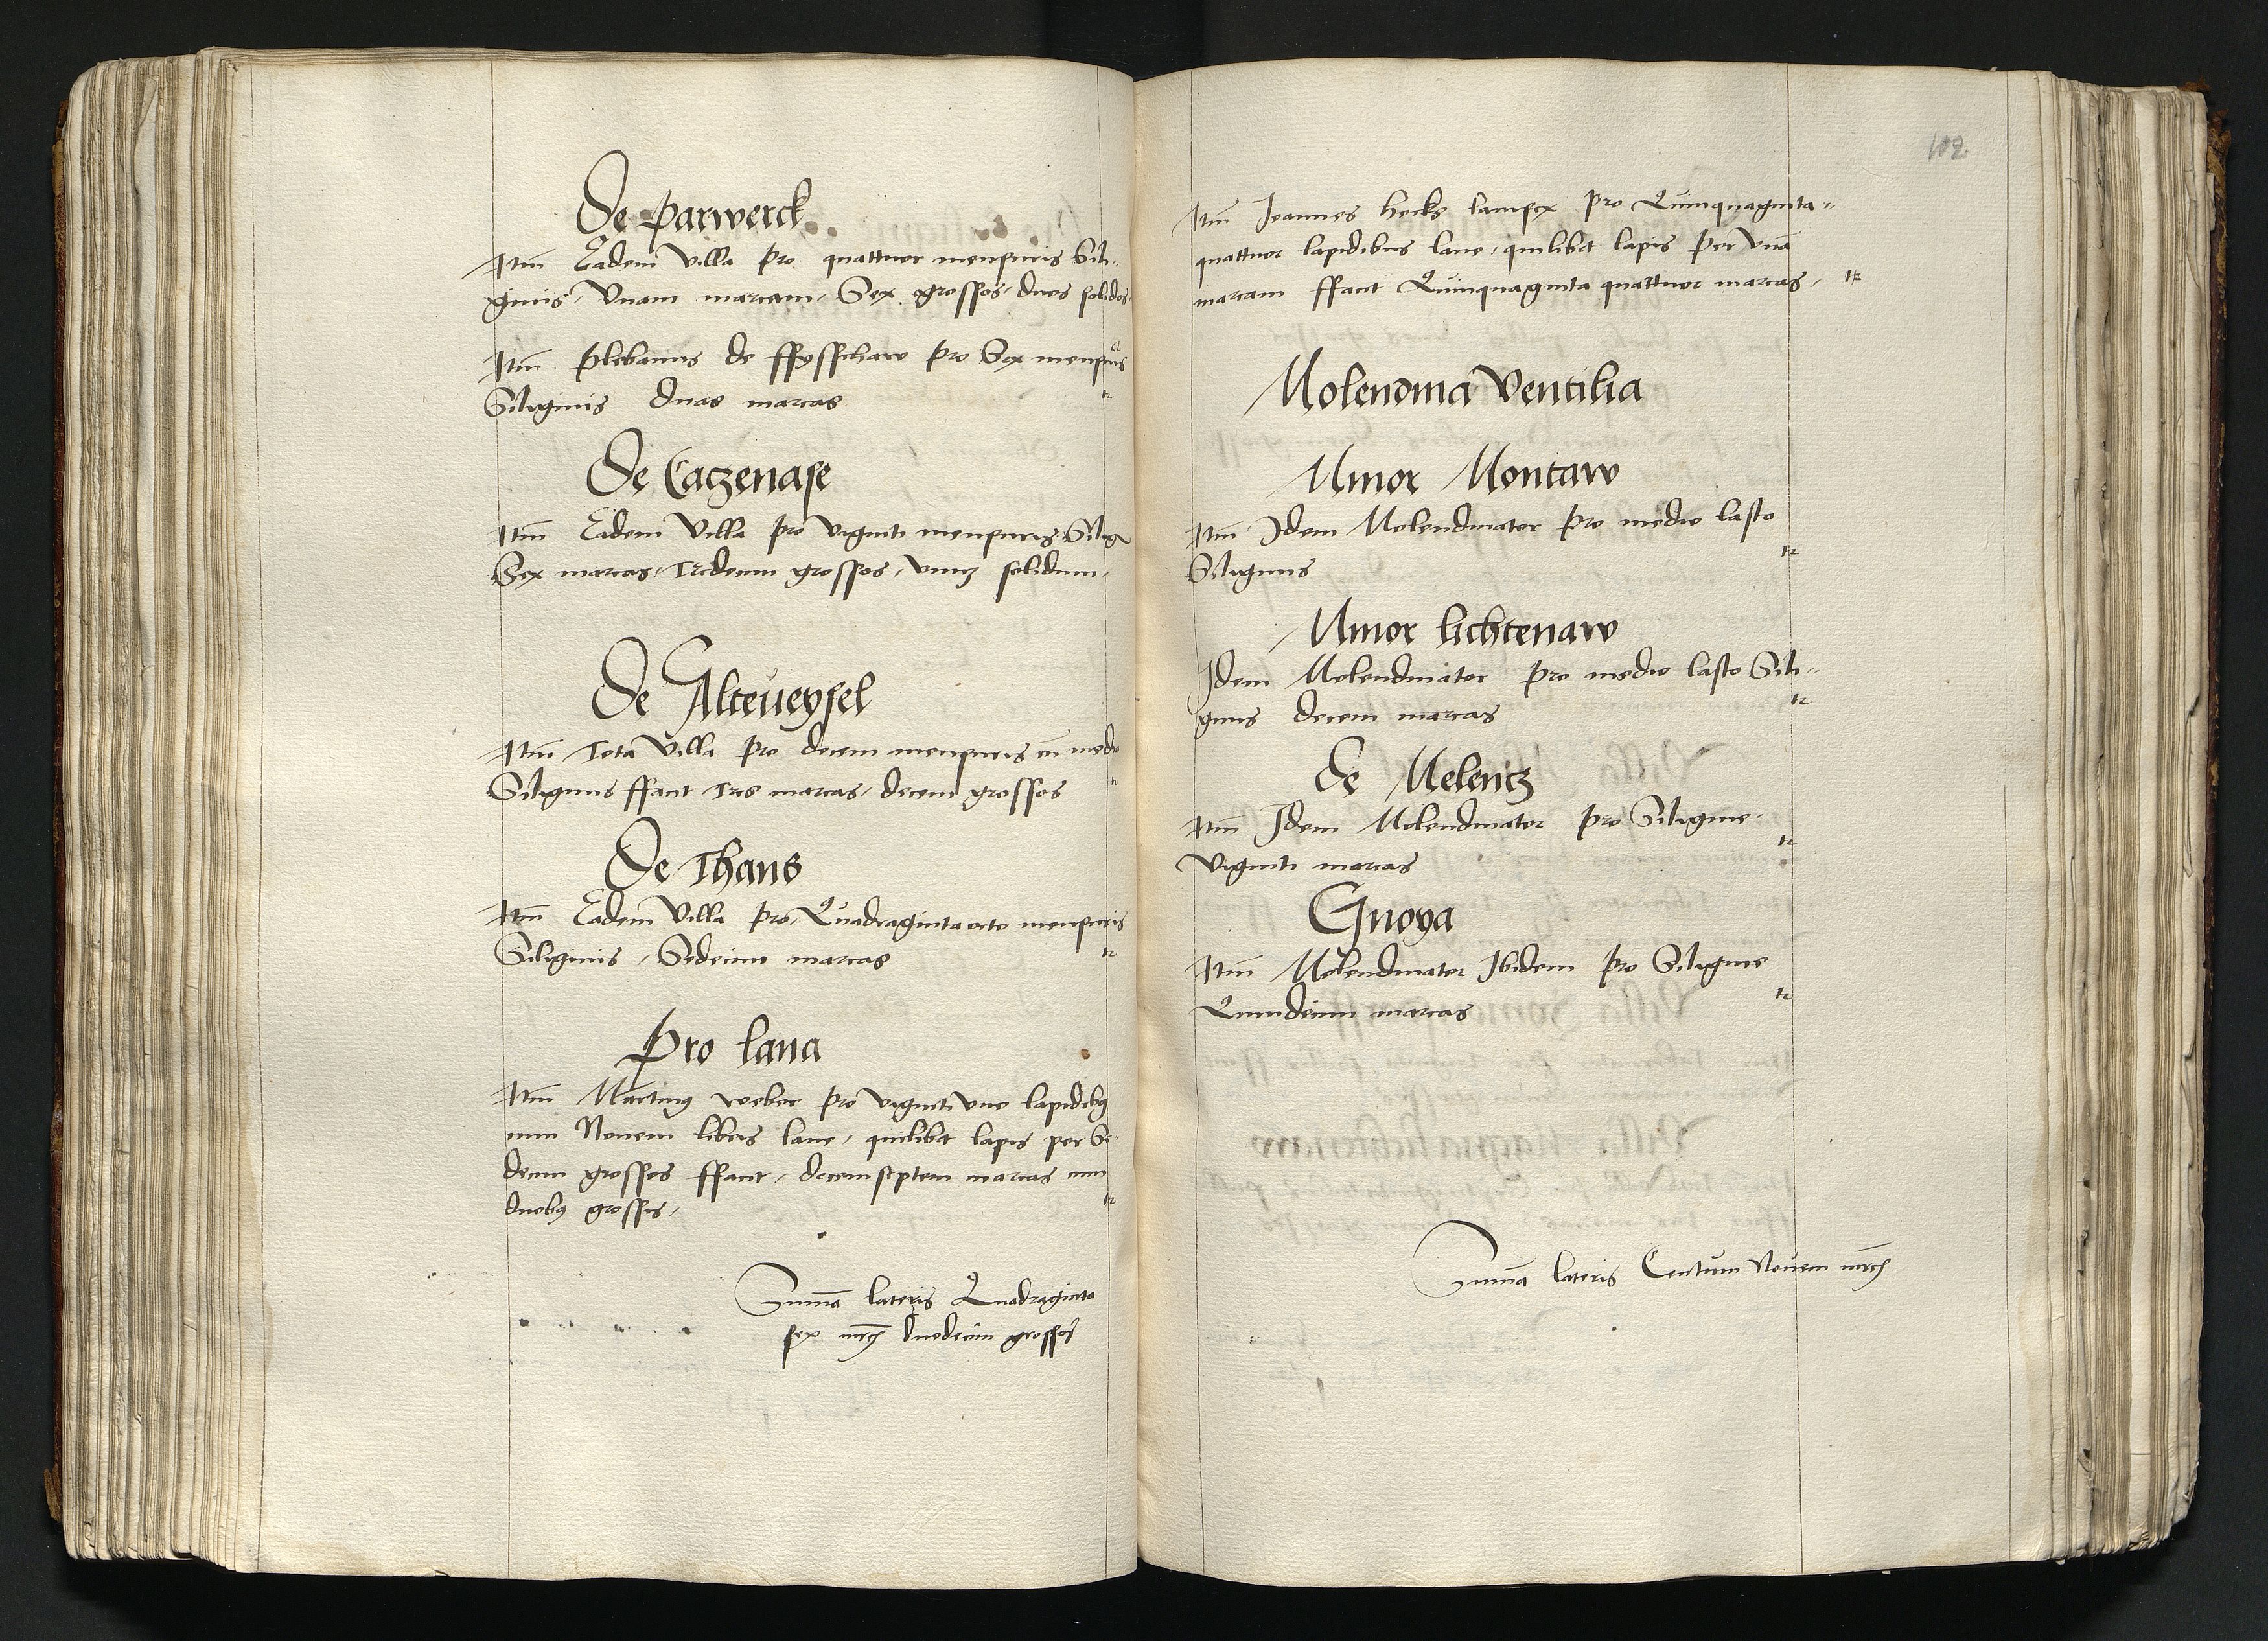 De Parwerck
Itm̄ Eadem Villa pro quattuor mensuris Sili-
ginis, Vnam marcam, Sex grossos, duos solidos,
Itm̄ Plebanus de ffysschaw pro Sex mensuris
Siliginis duas marcas tz
De Caczenase
Itm̄ Eadem Villa pro viginti mensuris Silig
Sex marcas, Tredecim grossos, vnū solidum,
De Alteueysel
Itm̄ Tota Villa pro decem mensuris cū medio
Siliginis ffacit Tres marcas, decem grossos
De Thans
Itm̄ Eadem Villa pro, Quadraginta octo mensuris
Siliginis, Sedecim marcas tz
Pro lana
Itm̄ Martinus weber pro viginti vno lapidibus
cum Nouem libris lane, quilibet lapis per Se-
decim grossos ffaciunt, decemseptem marcas cum
duobus grossis, tz
Summa lateris Quadraginta
sex mrc̄ duodecim grossos
102
Itm̄ Joannes Hecks lanifex pro Quinquaginta-
quattuor lapidibus lane, quilibet lapis per vnā
marcam ffaciunt Quinquaginta quattuor marcas, tz
Molendina Ventilia
Minor Montaw
Itm̄ Idem Molendinator pro medio lasto
Siliginis tz
Minor lichtenaw
Idem Molendinator pro medio lasto Sili-
ginis decem marcas tz
De Melentz
Itm̄ Idem Molendinator pro Siligine.
Viginti marcas tz
Gnoya
Itm̄ Molendinator Ibidem pro Siligine
Quindecim marcas tz
Summa lateris Centum Nouem mrc̄